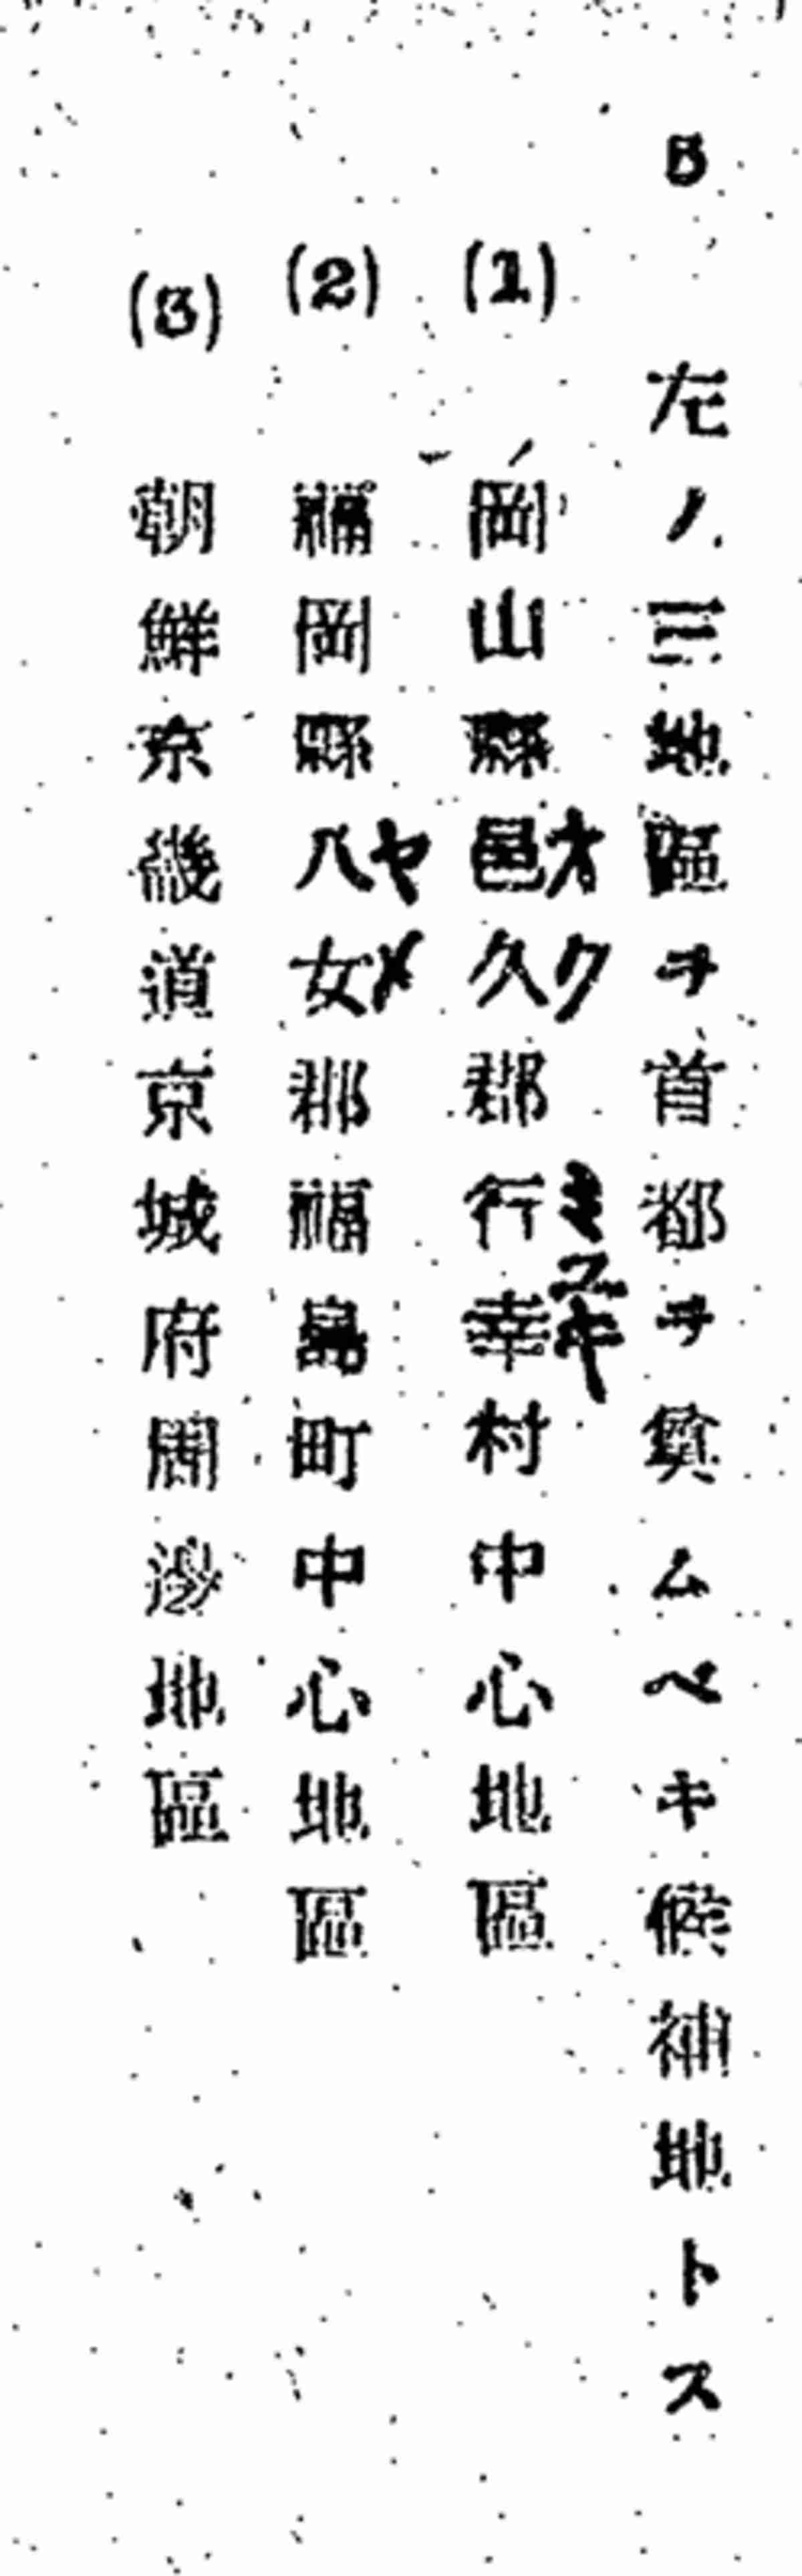 3 左ノ三地區ヲ首都ヲ奠ムベキ候補地トス
(1) 岡山縣邑久郡行幸村中心地區
オク ミユキ
(2) 福岡縣八女郡福島町中心地區
ヤメ
(3) 朝鮮京畿道京城府周邊地區